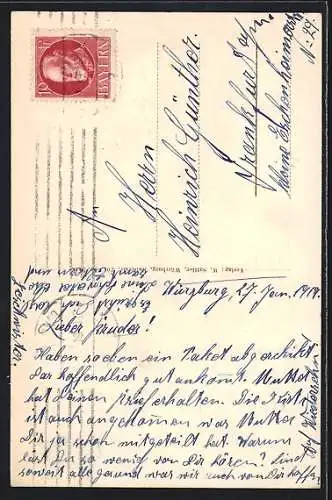 10
BAYERN
An
Herrn
Heinrich Günther.
Frankfurt a/m
kleine Eschenheimerstr
N: 29.
Verlag: H. Sattler, Würzburg,
Würzburg, 27. Jan. 1914.
Lieber Bruder!
Haben soeben ein Paket abgeschickt
das hoffentlich gut ankomt. Mutter
hat deinen Brief erhalten. Die
ist auch angekommen was Mutter
Dir ja schon mitgeteilt hat. Warum
läst Du so wenig von Dir hören? Sind
soweit alle gesund was wir auch von Dir hoffen.
Auf Wiedersehn
Es grüsst Dich